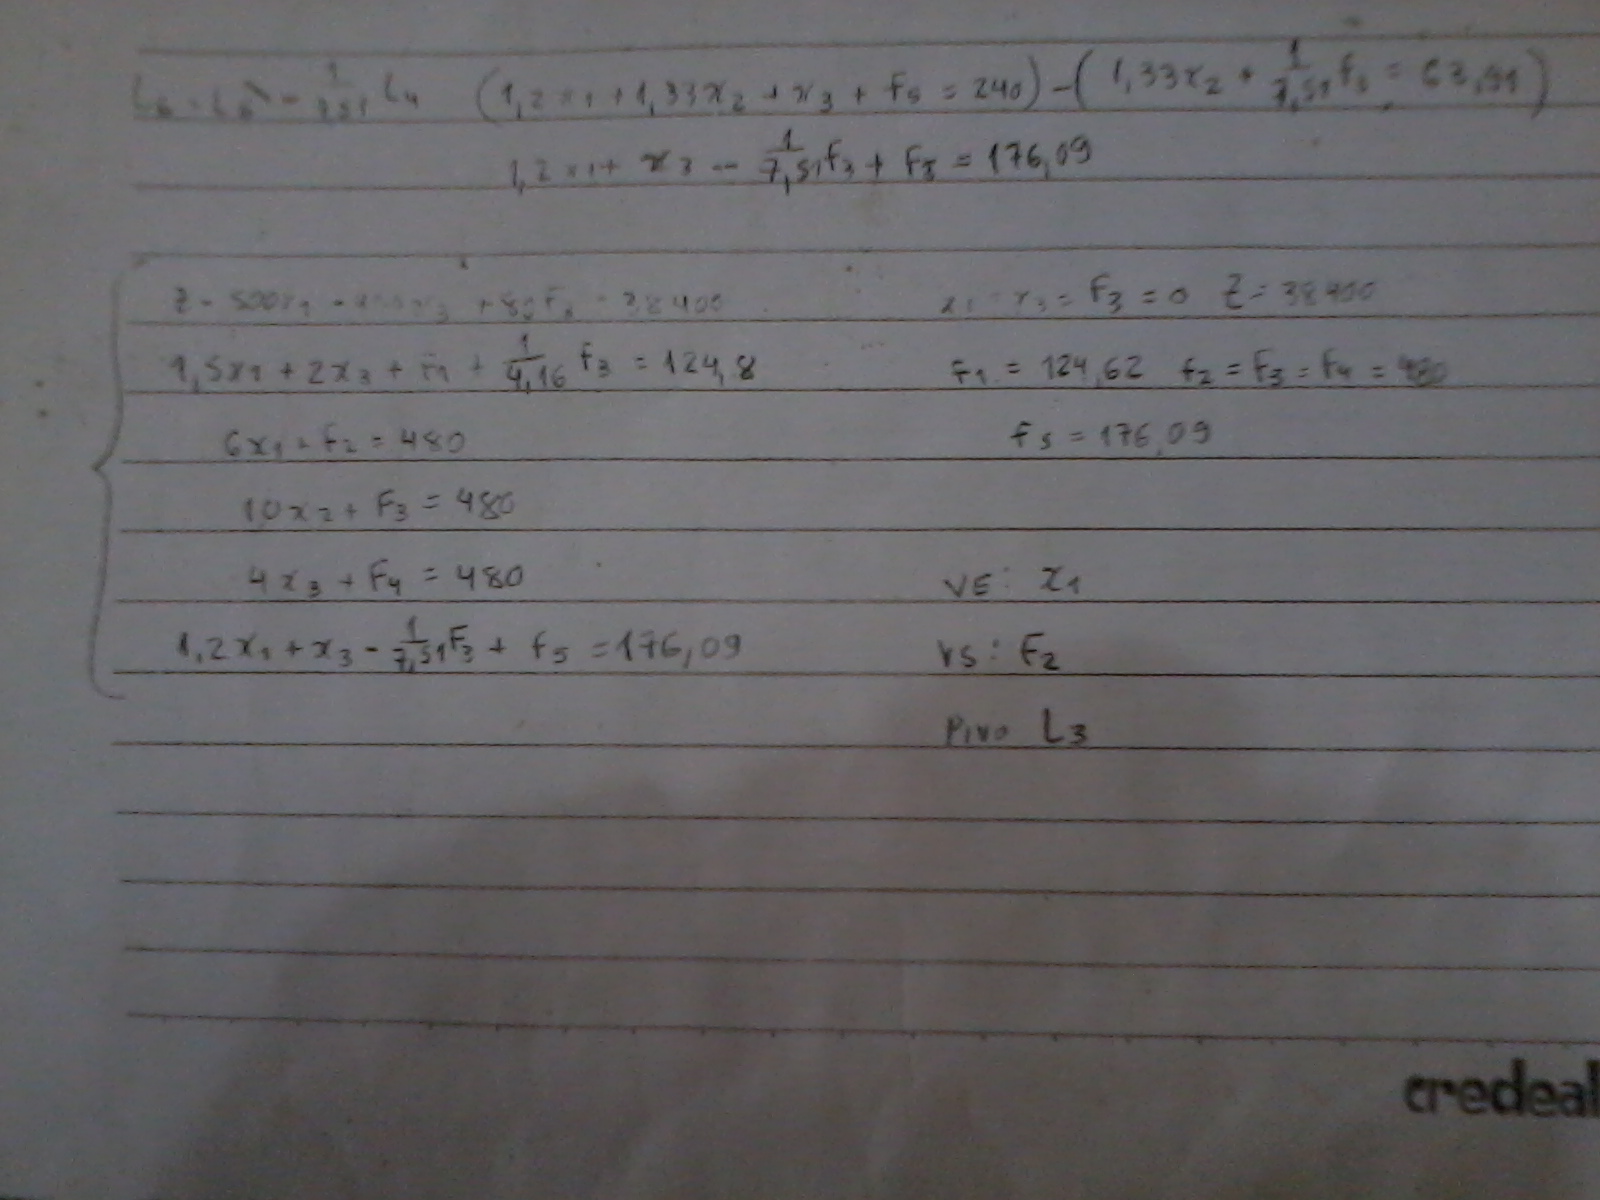 (1,2x1 + 1,33x2 + x3 + F5 = 240) - (1,33x2 + 1/7,51 f3 = 63,91)
1,2x1 + x3 - 1/7,51 f3 + F5 = 176,09
Z - 500x1 - x3 + 80F3 = 38400 x1 = x3 = F3 = 0 Z = 38400
1,5x1 + 2x3 + F1 + 1/4,16 f3 = 124,8 F1 = 124,62 f2 = F3 = F4 = 480
6x1 + F2 = 480 f5 = 176,09
10x2 + F3 = 480
4x3 + F4 = 480 VE: x1
1,2x1 + x3 - 1/7,51 F3 + f5 = 176,09 VS: F2
Pivo L3
credeal